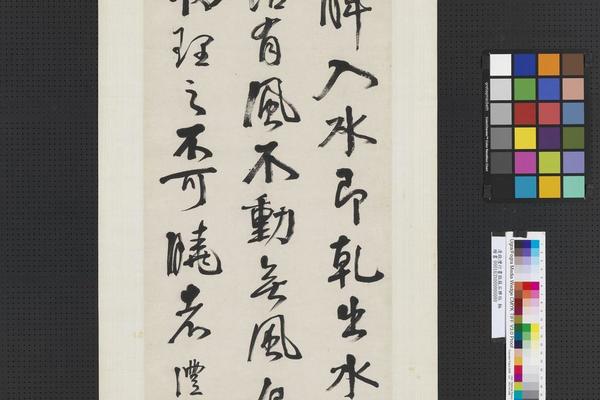 脾入水即乾出水
活有風不動無風自
物理之不可曉者澧